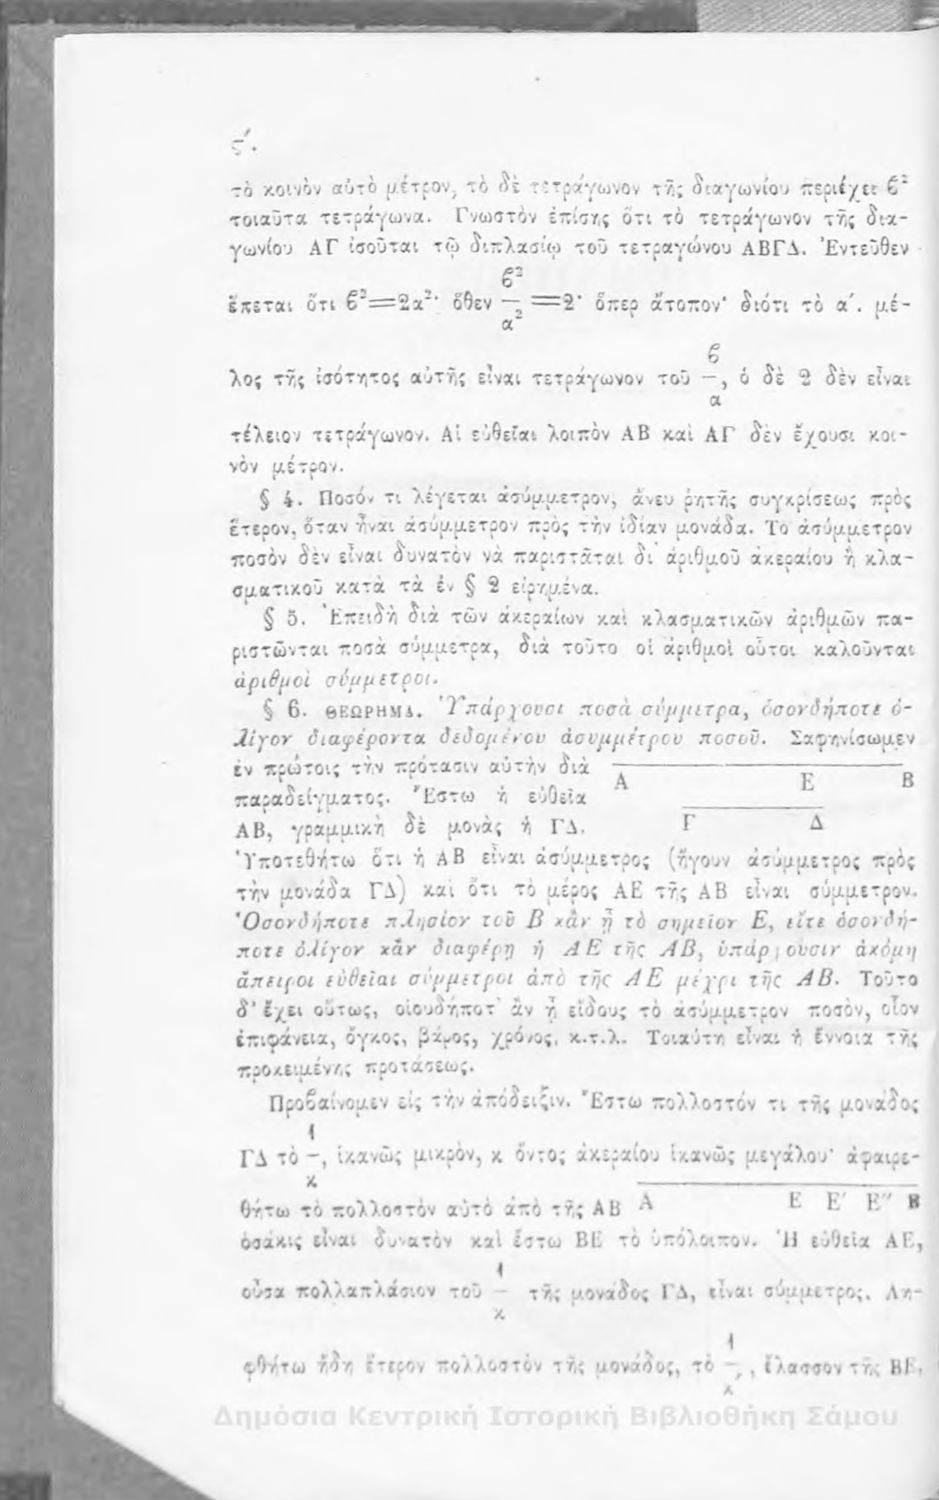 ς΄.
τὸ κοινὸν αὐτὸ μέτρον, τὸ δὲ τετράγωνον τῆς διαγωνίου περιέχει ϐ²
τοιαῦτα τετράγωνα. Γνωστὸν ἐπίσης ὅτι τὸ τετράγωνον τῆς δια-
γωνίου ΑΓ ἰσοῦται τῷ διπλασίῳ τοῦ τετραγώνου ΑΒΓΔ. Ἐντεῦθεν
ἕπεται ὅτι ϐ²=2α²· ὅθεν ϐ²/α² =2· ὅπερ ἄτοπον· διότι τὸ α΄. μέ-
λος τῆς ἰσότητος αὐτῆς εἶναι τετράγωνον τοῦ ϐ/α, ὁ δὲ 2 δὲν εἶναι
τέλειον τετράγωνον. Αἱ εὐθεῖαι λοιπὸν ΑΒ καὶ ΑΓ δὲν ἔχουσι κοι-
νὸν μέτρον.
§ 4. Ποσόν τι λέγεται ἀσύμμετρον, ἄνευ ῥητῆς συγκρίσεως πρὸς
ἕτερον, ὅταν ἦναι ἀσύμμετρον πρὸς τὴν ἰδίαν μονάδα. Το ἀσύμμετρον
ποσὸν δὲν εἶναι δυνατὸν νὰ παριστᾶται δι ἀριθμοῦ ἀκεραίου ἢ κλα-
σματικοῦ κατὰ τὰ ἐν § 2 εἰρημένα.
§ 5. Ἐπειδὴ διὰ τῶν ἀκεραίων καὶ κλασματικῶν ἀριθμῶν πα-
ριστῶνται ποσὰ σύμμετρα, διὰ τοῦτο οἱ ἀριθμοὶ οὗτοι καλοῦνται
ἀριθμοὶ σύμμετροι.
§ 6. ΘΕΩΡΗΜΑ. Ὑπάρχουσι ποσὰ σύμμετρα, ὁσονδήποτε ὀ-
λίγον διαφέροντα δεδομένου ἀσυμμέτρου ποσοῦ. Σαφηνίσωμεν
ἐν πρώτοις τὴν πρότασιν αὐτὴν διὰ
Α Ε Β
παραδείγματος. Ἔστω ἡ εὐθεῖα
Γ Δ
ΑΒ, γραμμικὴ δὲ μονὰς ἡ ΓΔ.
Ὑποτεθήτω ὅτι ἡ ΑΒ εἶναι ἀσύμμετρος (ἤγουν ἀσύμμετρος πρὸς
τὴν μονάδα ΓΔ) καὶ ὅτι τὸ μέρος ΑΕ τῆς ΑΒ εἶναι σύμμετρον.
Ὁσονδήποτε πλησίον τοῦ Β κἂν ᾖ τὸ σημεῖον Ε, εἴτε ὁσονδή-
ποτε ὀλίγον κἂν διαφέρῃ ἡ ΑΕ τῆς ΑΒ, ὑπάρχουσιν ἀκόμη
ἄπειροι εὐθεῖαι σύμμετροι ἀπὸ τῆς ΑΕ μέχρι τῆς ΑΒ. Τοῦτο
δ' ἔχει οὕτως, οἱουδήποτ' ἂν ᾖ εἴδους τὸ ἀσύμμετρον ποσὸν, οἷον
ἐπιφάνεια, ὄγκος, βάρος, χρόνος, κ.τ.λ. Τοιαύτη εἶναι ἡ ἔννοια τῆς
προκειμένης προτάσεως.
Προϐαίνομεν εἰς τὴν ἀπόδειξιν. Ἔστω πολλοστόν τι τῆς μονάδος
ΓΔ τὸ 1/κ, ἱκανῶς μικρὸν, κ ὄντος ἀκεραίου ἱκανῶς μεγάλου· ἀφαιρε-
θήτω τὸ πολλοστὸν αὐτὸ ἀπὸ τῆς ΑΒ
Α Ε Ε′ Ε″ Β
ὁσάκις εἶναι δυνατὸν καὶ ἔστω ΒΕ τὸ ὑπόλοιπον. Ἡ εὐθεῖα ΑΕ,
οὖσα πολλαπλάσιον τοῦ 1/κ τῆς μονάδος ΓΔ, εἶναι σύμμετρος. Λη-
φθήτω ἤδη ἕτερον πολλοστὸν τῆς μονάδος, τὸ 1/κ′, ἔλασσον τῆς ΒΕ,
Δημόσια Κεντρική Ιστορική Βιβλιοθήκη Σάμου